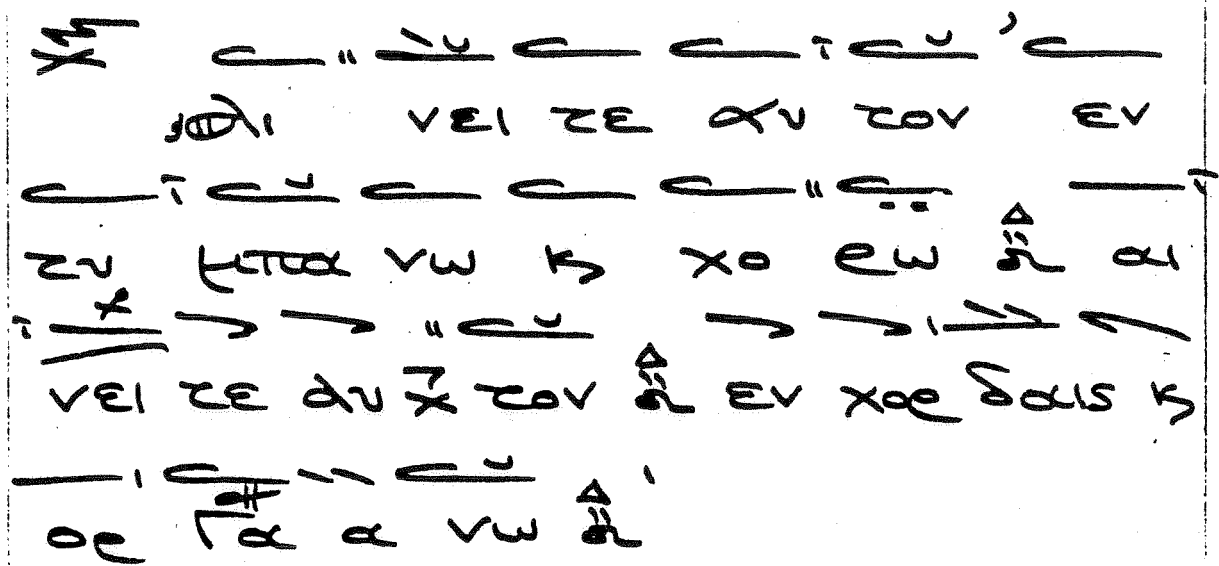 νει τε αυ τον εν
τυ μπα νω ϗ χο ρω αι
νει τε αυ τον εν χορ δαις ϗ
ορ γα α νω